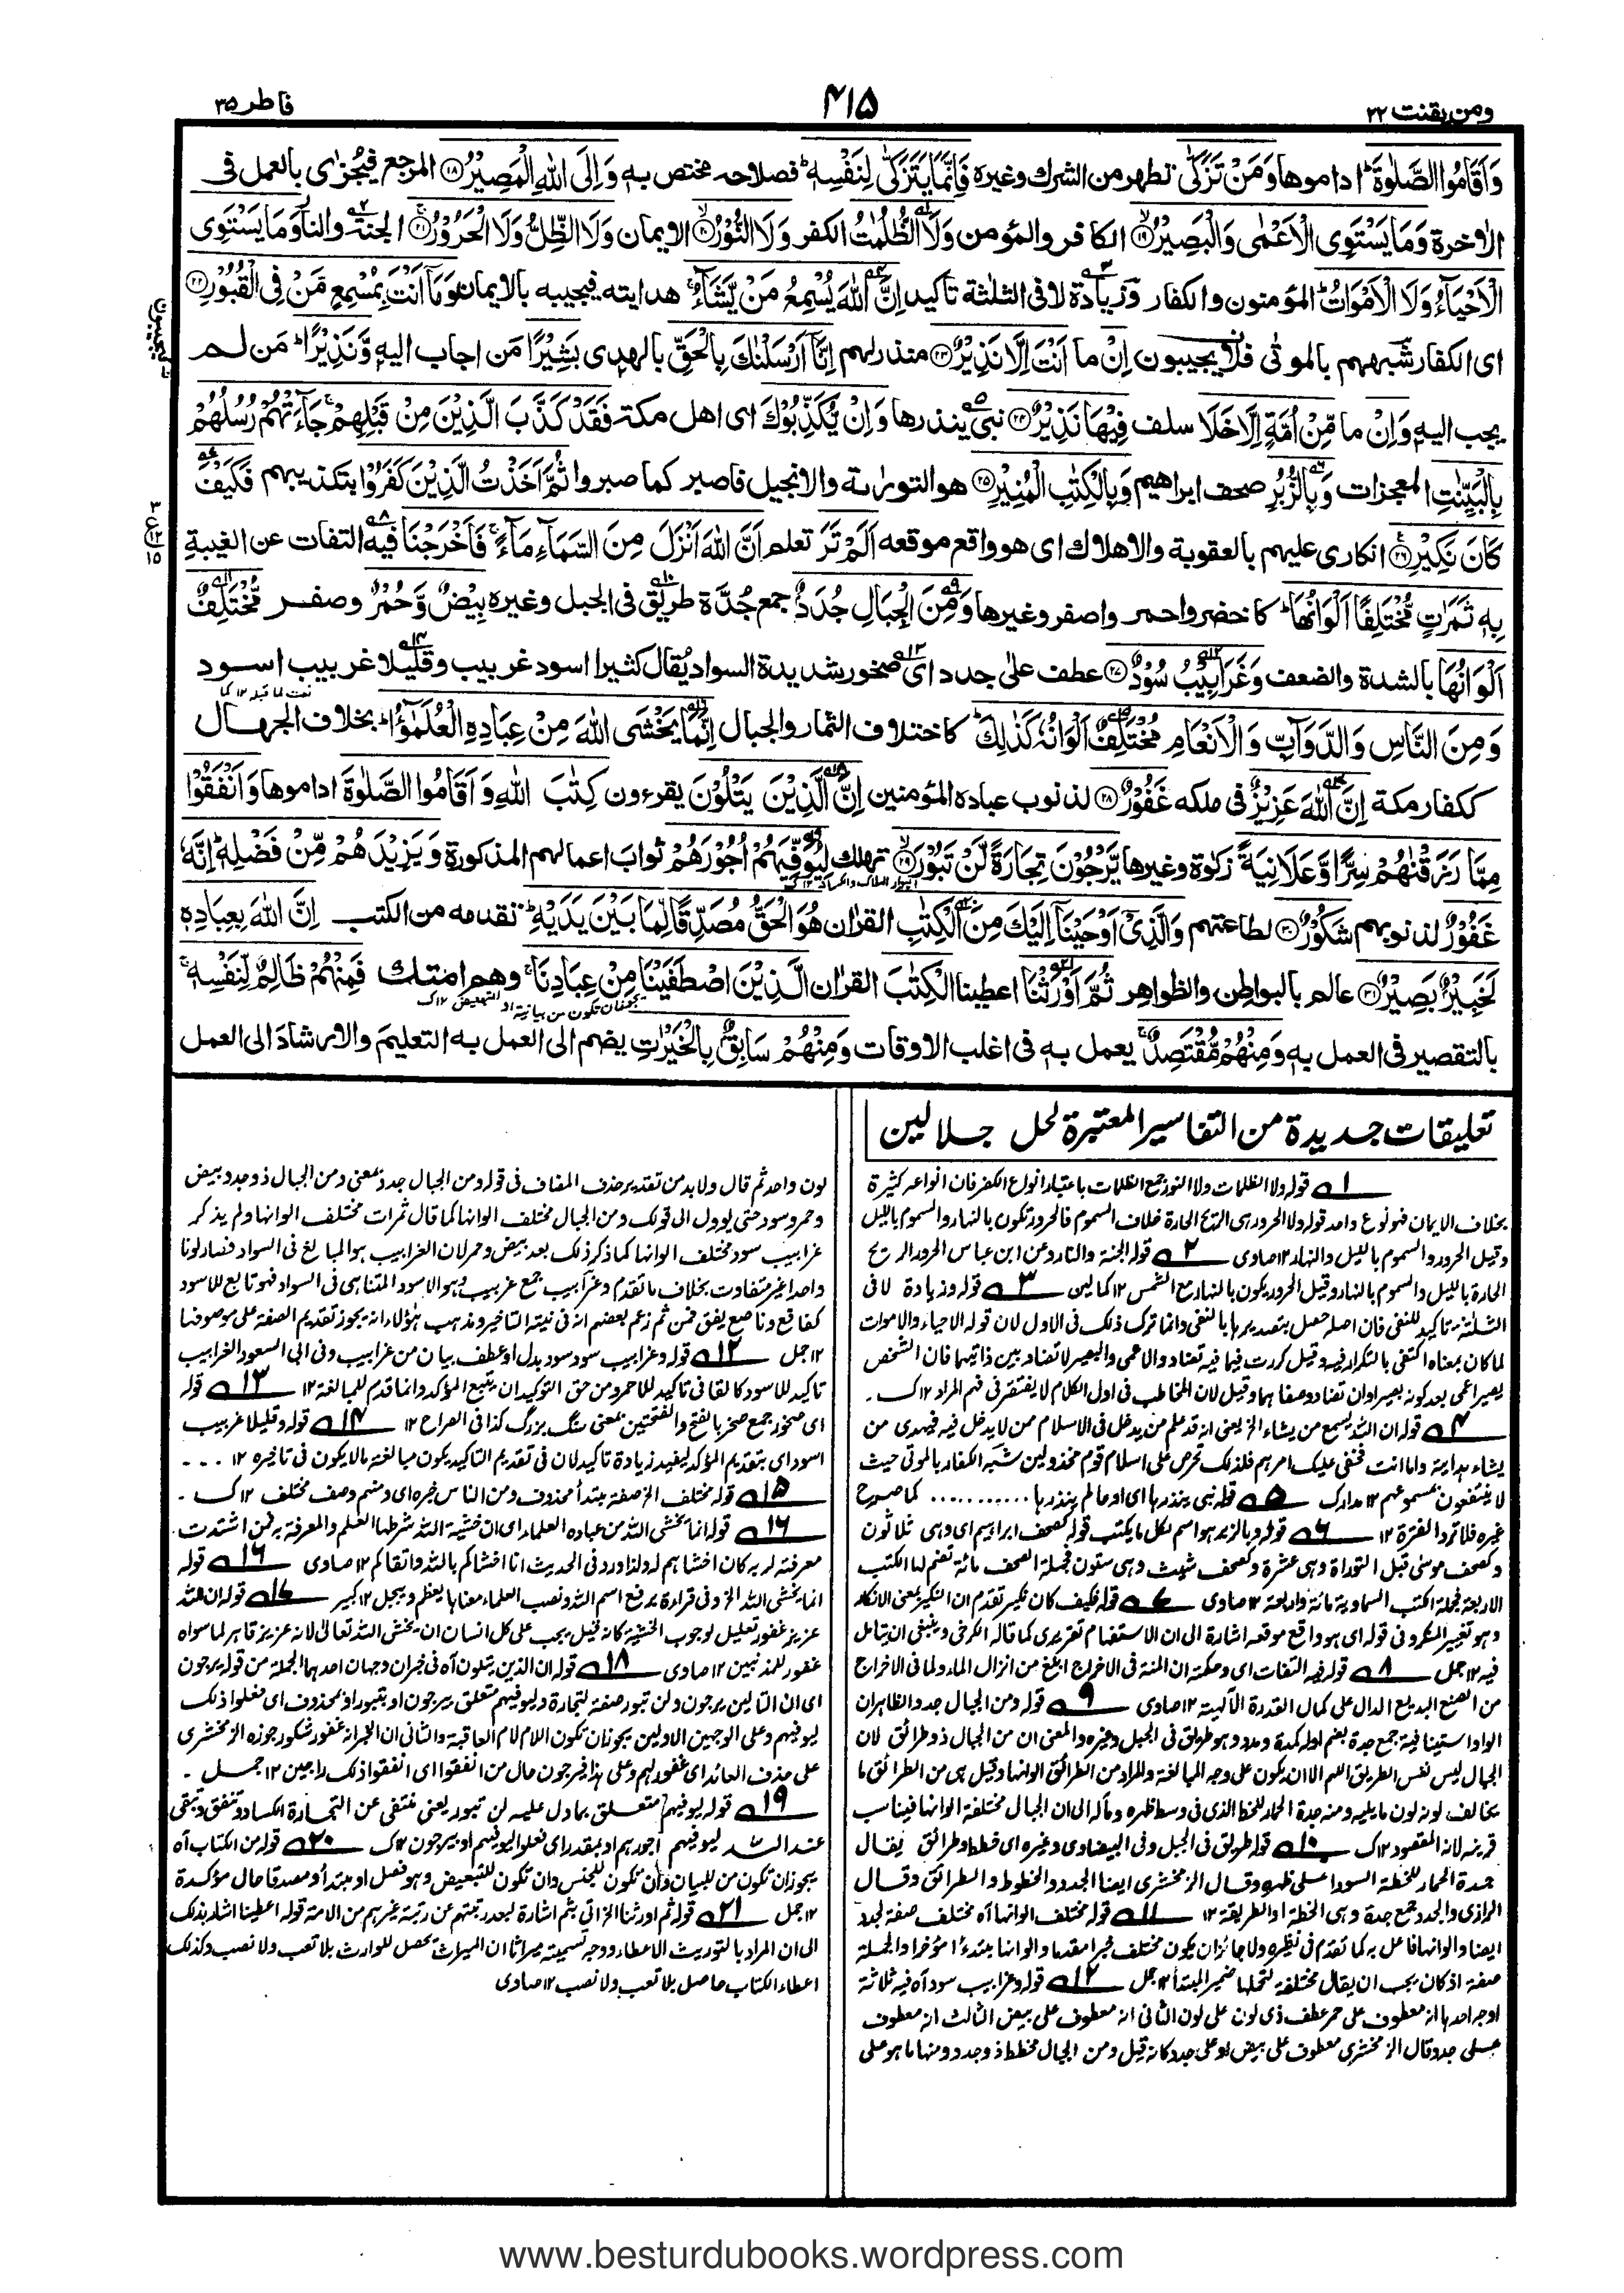 ومن يقنت ٢٢
٤١٥
فاطر ٣٥
وَاَقَامُوا الصَّلٰوةَ ؕ اداموها وَمَنْ تَزَكّٰى تطهر من الشرك وغيره فَاِنَّمَا يَتَزَكّٰى لِنَفْسِهٖ ؕ فصلاحه مختص به وَاِلَى اللّٰهِ الْمَصِيْرُ ۝١٨ المرجع فيجزى بالعمل فى
الاٰخرة وَمَا يَسْتَوِى الْاَعْمٰى وَالْبَصِيْرُ ۝١٩ الكافر والمؤمن وَلَا الظُّلُمٰتُ الكفر وَلَا النُّوْرُ ۝٢٠ الايمان وَلَا الظِّلُّ وَلَا الْحَرُوْرُ ۝٢١ الجنة والنار وَمَا يَسْتَوِى
الْاَحْيَآءُ وَلَا الْاَمْوَاتُ ؕ المؤمنون والكفار وزيادة لا فى الثلثة تاكيد اِنَّ اللّٰهَ يُسْمِعُ مَنْ يَّشَآءُ ۚ هدايته فيجيبه بالايمان وَمَآ اَنْتَ بِمُسْمِعٍ مَّنْ فِى الْقُبُوْرِ ۝٢٢
اى الكفار شبههم بالموتٰى فلا يجيبون اِنْ ما اَنْتَ اِلَّا نَذِيْرٌ ۝٢٣ منذر لهم اِنَّآ اَرْسَلْنٰكَ بِالْحَقِّ بالهدى بَشِيْرًا من اجاب اليه وَّنَذِيْرًا ؕ من لم
يجب اليه وَاِنْ ما مِّنْ اُمَّةٍ اِلَّا خَلَا سلف فِيْهَا نَذِيْرٌ ۝٢٤ نبى ينذرها وَاِنْ يُّكَذِّبُوْكَ اى اهل مكة فَقَدْ كَذَّبَ الَّذِيْنَ مِنْ قَبْلِهِمْ ۚ جَآءَتْهُمْ رُسُلُهُمْ
بِالْبَيِّنٰتِ المعجزات وَبِالزُّبُرِ صحف ابراهيم وَبِالْكِتٰبِ الْمُنِيْرِ ۝٢٥ هو التورٰىة والانجيل فاصبر كما صبروا ثُمَّ اَخَذْتُ الَّذِيْنَ كَفَرُوْا بتكذيبهم فَكَيْفَ
كَانَ نَكِيْرِ ۝٢٦ انكارى عليهم بالعقوبة والاهلاك اى هو واقع موقعه اَلَمْ تَرَ تعلم اَنَّ اللّٰهَ اَنْزَلَ مِنَ السَّمَآءِ مَآءً ۚ فَاَخْرَجْنَا فيه التفات عن الغيبة
بِهٖ ثَمَرٰتٍ مُّخْتَلِفًا اَلْوَانُهَا ؕ كاخضر واحمر واصفر وغيرها وَمِنَ الْجِبَالِ جُدَدٌۢ جمع جُدَّة طريق فى الجبل وغيره بِيْضٌ وَّحُمْرٌ وصفر مُّخْتَلِفٌ
اَلْوَانُهَا بالشدة والضعف وَغَرَابِيْبُ سُوْدٌ ۝٢٧ عطف على جدد اى صخور شديدة السواد يُقال كثيرا اسود غربيب وقليلا غربيب اسود
وَمِنَ النَّاسِ وَالدَّوَآبِّ وَالْاَنْعَامِ مُخْتَلِفٌ اَلْوَانُهٗ كَذٰلِكَ ؕ كاختلاف الثمار والجبال اِنَّمَا يَخْشَى اللّٰهَ مِنْ عِبَادِهِ الْعُلَمٰٓؤُا ؕ بخلاف الجهال
ككفار مكة اِنَّ اللّٰهَ عَزِيْزٌ فى ملكه غَفُوْرٌ ۝٢٨ لذنوب عباده المؤمنين اِنَّ الَّذِيْنَ يَتْلُوْنَ يقرءون كِتٰبَ اللّٰهِ وَاَقَامُوا الصَّلٰوةَ اداموها وَاَنْفَقُوْا
مِمَّا رَزَقْنٰهُمْ سِرًّا وَّعَلَانِيَةً زكوٰة وغيرها يَّرْجُوْنَ تِجَارَةً لَّنْ تَبُوْرَ ۝٢٩ تهلك لِيُوَفِّيَهُمْ اُجُوْرَهُمْ ثوابَ اعمالهم المذكورة وَيَزِيْدَهُمْ مِّنْ فَضْلِهٖ ؕ اِنَّهٗ
غَفُوْرٌ لذنوبهم شَكُوْرٌ ۝٣٠ لطاعتهم وَالَّذِىْٓ اَوْحَيْنَآ اِلَيْكَ مِنَ الْكِتٰبِ القراٰن هُوَ الْحَقُّ مُصَدِّقًا لِّمَا بَيْنَ يَدَيْهِ ؕ تقدمه من الكتب اِنَّ اللّٰهَ بِعِبَادِهٖ
لَخَبِيْرٌۢ بَصِيْرٌ ۝٣١ عالم بالبواطن والظواهر ثُمَّ اَوْرَثْنَا اعطينا الْكِتٰبَ القراٰن الَّذِيْنَ اصْطَفَيْنَا مِنْ عِبَادِنَا ۚ وهم امتك فَمِنْهُمْ ظَالِمٌ لِّنَفْسِهٖ ۚ
بالتقصير فى العمل به وَمِنْهُمْ مُّقْتَصِدٌ ۚ يعمل به فى اغلب الاوقات وَمِنْهُمْ سَابِقٌۢ بِالْخَيْرٰتِ يضم الى العمل به التعليم والارشاد الى العمل
تعليقات جديدة من التفاسير المعتبرة لحل جلالين
١ قوله ولا الظلمات ولا النور جمع الظلمات باعتبار انواع الكفر فان انواعه كثيرة
بخلاف الايمان فهو نوع واحد قوله ولا الحرور هى الريح الحارة خلاف السموم فالحرور تكون بالنهار والسموم بالليل
وقيل الحرور والسموم بالليل والنهار ١٢ صاوى ٢ قوله الجنة والنار وعن ابن عباس الحرور الريح
الحارة بالليل والسموم بالنهار وقيل الحرور يكون بالنهار مع الشمس ١٢ كمالين ٣ قوله وزيادة لا فى
الثلثة تاكيد للنفى فان اصله حصل بتصديرها بالنفى وانما ترك ذلك فى الاول لان قوله الاحياء والاموات
لما كان بمعناه اكتفى بالتكرار فيه وقيل كررت فيما فيه تضاد والاعمى والبصير لا تضاد بين ذاتيهما فان الشخص
يصير اعمى بعد كونه بصيرا وان تضاد وصفاهما وقيل لان المخاطب فى اول الكلام لا يفتقر فى فهم المراد ١٢ ك ۔
٤ قوله ان الله يسمع من يشاء الخ يعنى انه قد علم من يدخل فى الاسلام ممن لا يدخل فيه فيهدى من
يشاء هدايته واما انت فخفى عليك امرهم فلذلك تحرص على اسلام قوم مخذولين شبه الكفار بالموتى حيث
لا ينتفعون بمسموعهم ١٢ مدارك ٥ قوله نبى ينذرها اى او عالم ينذرها ........... كما صرح
غيره فلا ترد الفترة ١٢ ٦ قوله وبالزبر هو اسم لكل ما يكتب قوله كصحف ابراهيم اى وهى ثلاثون
وكصحف موسى قبل التوراة وهى عشرة وكصحف شيث وهى ستون فجملة الصحف مائة تضم لها الكتب
الاربعة فجملة الكتب السماوية مائة واربعة ١٢ صاوى ٧ قوله فكيف كان نكير تقدم ان النكير بمعنى الانكار
وهو تغيير المنكر وفى قوله اى هو واقع موقعه اشارة الى ان الاستفهام تقريرى كما قاله الكرخى وينبغى ان يتامل
فيه ١٢ جمل ٨ قوله فيه التفات اى وحكمته ان المنة فى الاخراج ابلغ من انزال الماء ولما فى الاخراج
من الصنع البديع الدال على كمال القدرة الآلهية ١٢ صاوى ٩ قوله ومن الجبال جدد الظاهر ان
الواو استينافية جمع جدة بضم اوله كمدة ومدد وهو طريق فى الجبل وغيره والمعنى ان من الجبال ذو طرائق لان
الجبال ليس نفس الطريق اللهم الا ان يكون على وجه المبالغة والمراد من الطرائق الوانها وقيل هى من الطرائق ما
يخالف لونه لون ما يليه ومنه جدة الحمار للخط الذى فى وسط ظهره ومآله الى ان الجبال مختلفة الوانها فيناسب
قرينه لانه المقصود ١٢ ك ١٠ قوله طريق فى الجبل وفى البيضاوى وغيره اى خطط وطرائق يقال
جدة الحمار للخطة السوداء على ظهره وقال الزمخشرى ايضا الجدد والخطوط والطرائق وقال
الرازى والجدد جمع جدة وهى الخطة او الطريقة ١٢ ١١ قوله مختلف الوانها آه مختلف صفة لجدد
ايضا والوانها فاعل به كما تقدم فى نظيره ولا جائز ان يكون مختلف خبرا مقدما والوانها مبتدءا مؤخرا والجملة
صفة اذ كان يجب ان يقال مختلفة لتحملها ضمير المبتدأ ١٢ جمل ١٢ قوله وغرابيب سود آه فيه ثلاثة
اوجه احدها انه معطوف على حمر عطف ذى لون على لون الثانى انه معطوف على بيض الثالث انه معطوف
على جدد قال الزمخشرى معطوف على بيض او على جدد كانه قيل ومن الجبال مخطط ذو جدد ومنها ما هو على
لون واحد ثم قال ولا بد من تقدير حذف المضاف فى قوله ومن الجبال جدد بمعنى ومن الجبال ذو جدد بيض
وحمر وسود حتى يوول الى قولك ومن الجبال مختلف الوانها كما قال ثمرات مختلف الوانها ولم يذكر
غرابيب سود مختلف الوانها كما ذكر ذلك بعد بيض وحمر لان الغرابيب هو المبالغ فى السواد فصار لونا
واحدا غير متفاوت بخلاف ما تقدم وغرابيب جمع غربيب وهو الاسود المتناهى فى السواد فهو تابع للاسود
كفاقع وناصع يفق فمن ثم زعم بعضهم انه فى نيته التاخير ومذهب هؤلاء انه يجوز تقديم الصفة على موصوفها
١٢ جمل ١٢ قوله وغرابيب سود سود بدل او عطف بيان من غرابيب وفى ابى السعود الغرابيب
تاكيد للاسود كالقانى تاكيد للاحمر ومن حق التوكيد ان يتبع المؤكد وانما قدم للمبالغة ١٢ ١٣ قوله
اى صخور جمع صخر بالفتح والفتحتين بمعنى سنگ بزرگ كذا فى الصراح ١٢ ١٤ قوله وقليلا غربيب
اسود اى بتقديم المؤكد ليفيد زيادة تاكيد لان فى تقديم التاكيد يكون مبالغته مالا يكون فى تاخيره ١٢ ...
١٥ قوله مختلف الخ صفة مبتدأ محذوف ومن الناس خبره اى ومنهم وصف مختلف ١٢ ك ۔
١٦ قوله انما يخشى الله من عباده العلماء اى ان خشية الله شرطها العلم والمعرفة به فمن اشتدت
معرفته لربه كان اخشاهم له ولذا ورد فى الحديث انا اخشاكم بالله واتقاكم ١٢ صاوى ١٦ قوله
انما يخشى الله الخ وفى قراءة برفع اسم الله ونصب العلماء معناها يعظم ويبجل ١٢ كبير ١٧ قوله ان الله
عزيز غفور تعليل لوجوب الخشية كانه قيل يجب على كل انسان ان يخشى الله تعالى لانه عزيز قاهر لما سواه
غفور للمذنبين ١٢ صاوى ١٨ قوله ان الذين يتلون آه فى خبر ان وجهان احدهما الجملة من قوله يرجون
اى ان التالين يرجون ولن تبور صفة لتجارة وليوفيهم متعلق بيرجون او بتبور او بمحذوف اى فعلوا ذلك
ليوفيهم وعلى الوجهين الاولين يجوز ان تكون اللام لام العاقبة والثانى ان الخبر انه غفور شكور جوزه الزمخشرى
على حذف العائد اى غفور لهم وعلى هذا فيرجون حال من انفقوا اى انفقوا ذلك راجين ١٢ جمل ۔
١٩ قوله ليوفيهم متعلق بما دل عليه لن تبور يعنى ينتفى عن التجارة الكساد وتنفق وتبقى
عند الله ليوفيهم اجورهم او بمقدر اى فعلوا ليوفيهم او بيرجون ١٢ ك ٢٠ قوله من الكتاب آه
يجوز ان تكون من للبيان وان تكون للجنس وان تكون للتبعيض وهو فصل او مبتدأ ومصدقا حال مؤكدة
١٢ جمل ٢١ قوله ثم اورثنا الخ اتى بثم اشارة لبعد رتبتهم عن رتبة غيرهم من الامة قوله اعطينا اشار بذلك
الى ان المراد بالتوريث الاعطاء ووجه تسميته ميراثا ان الميراث يحصل للوارث بلا تعب ولا نصب وكذلك
اعطاء الكتاب حاصل بلا تعب ولا نصب ١٢ صاوى
www.besturdubooks.wordpress.com